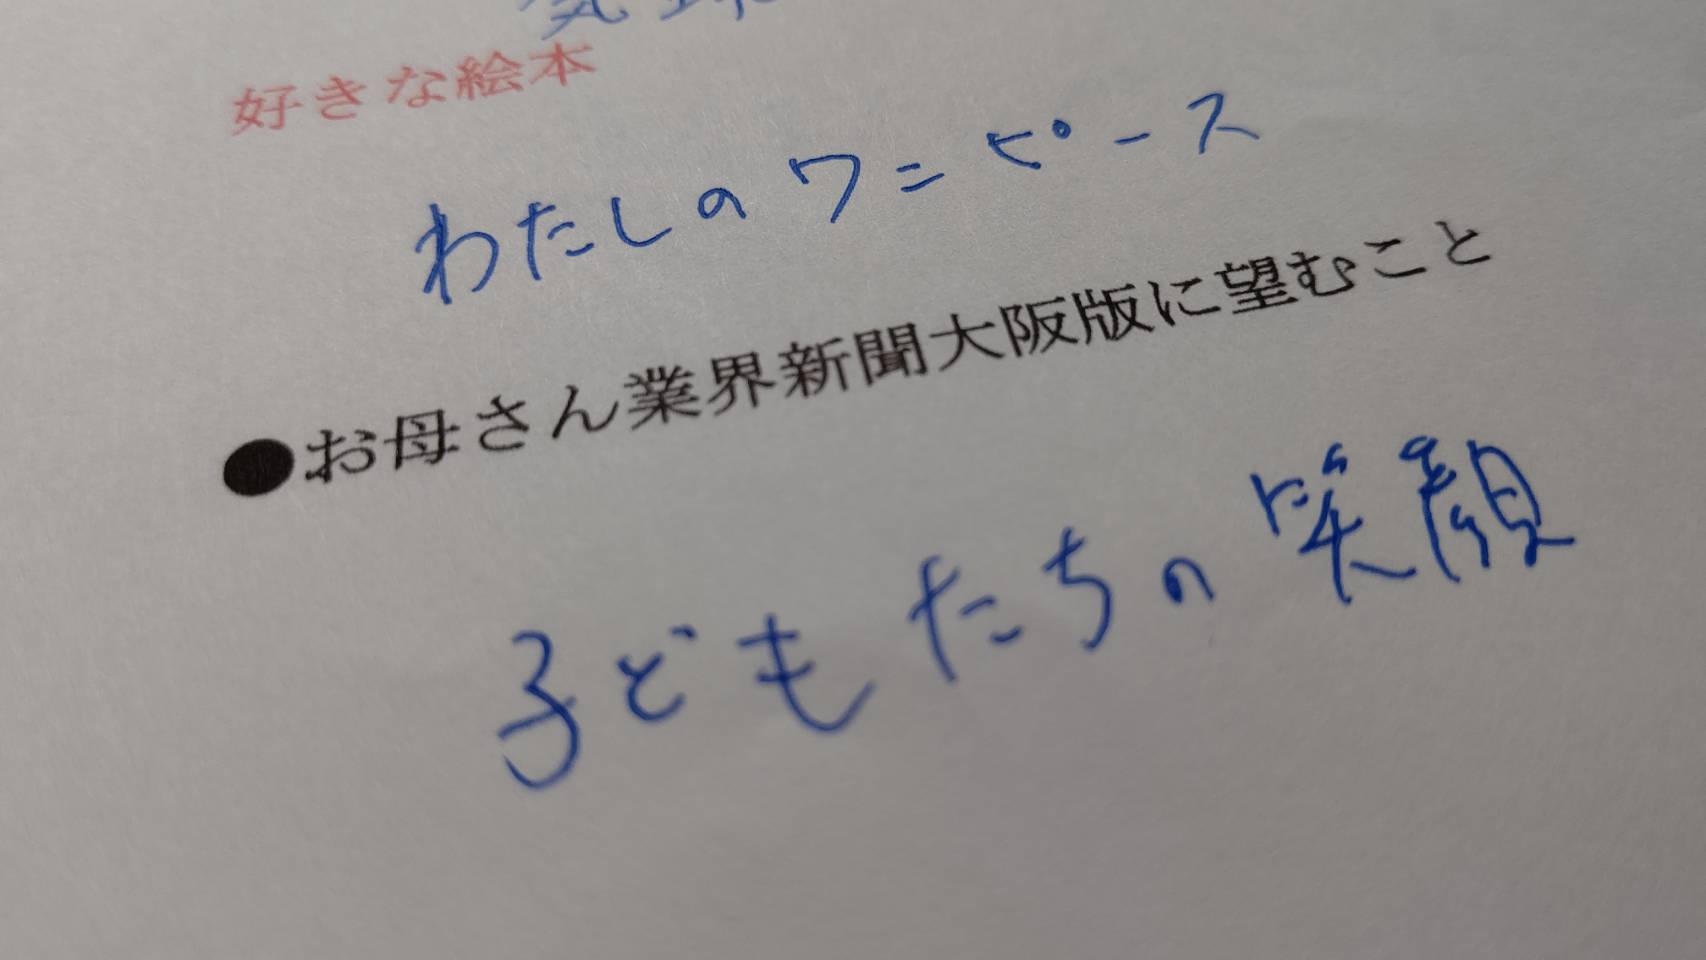 好きな絵本
わたしのワンピース
●お母さん業界新聞大阪版に望むこと
子どもたちの笑顔